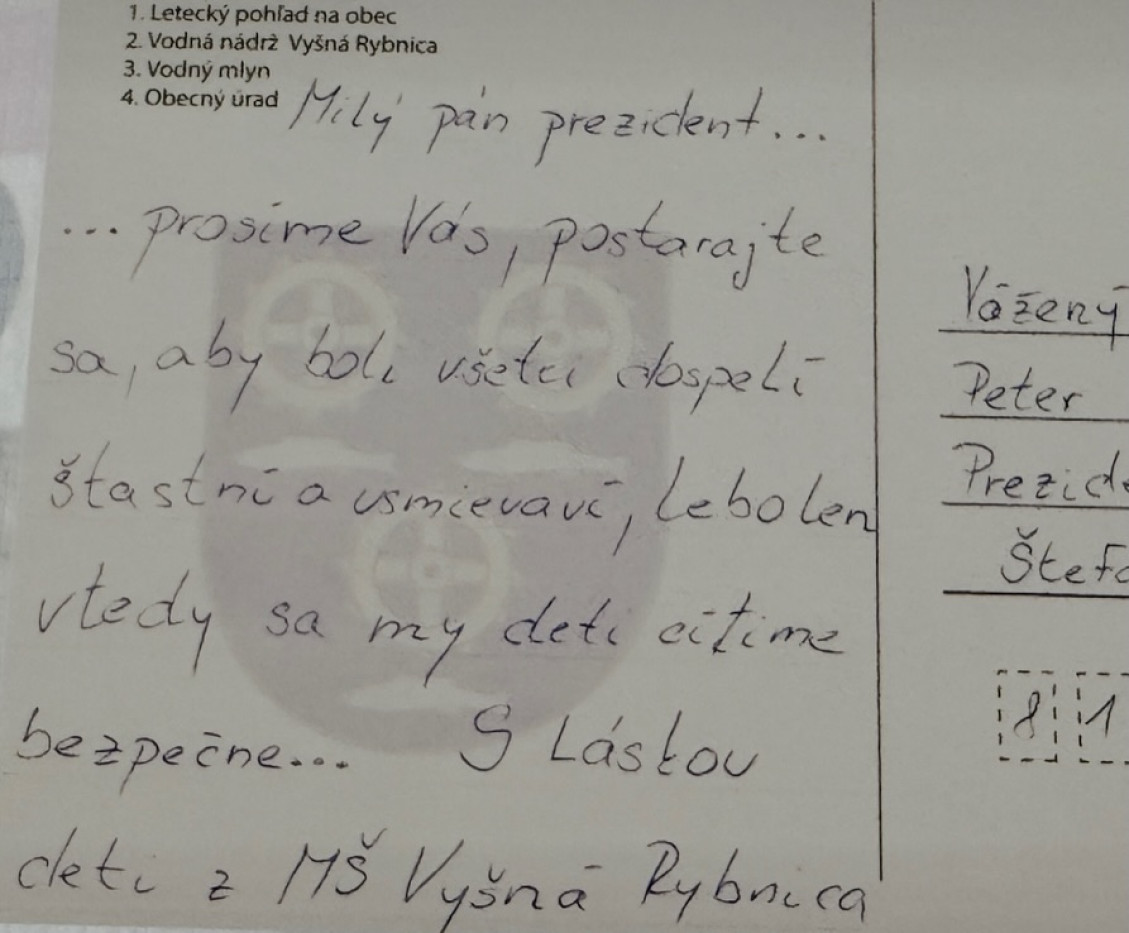 1. Letecký pohľad na obec
2. Vodná nádrž Vyšná Rybnica
3. Vodný mlyn
4. Obecný úrad
Milý pán prezident...
... prosíme Vás, postarajte
sa, aby boli všetci dospelí
štastní a usmievaví, lebo len
vtedy sa my deti cítime
bezpečne... S Láskou
deti z MŠ Vyšná Rybnica
Vážený
Peter
Prezide
Štefa
8 1